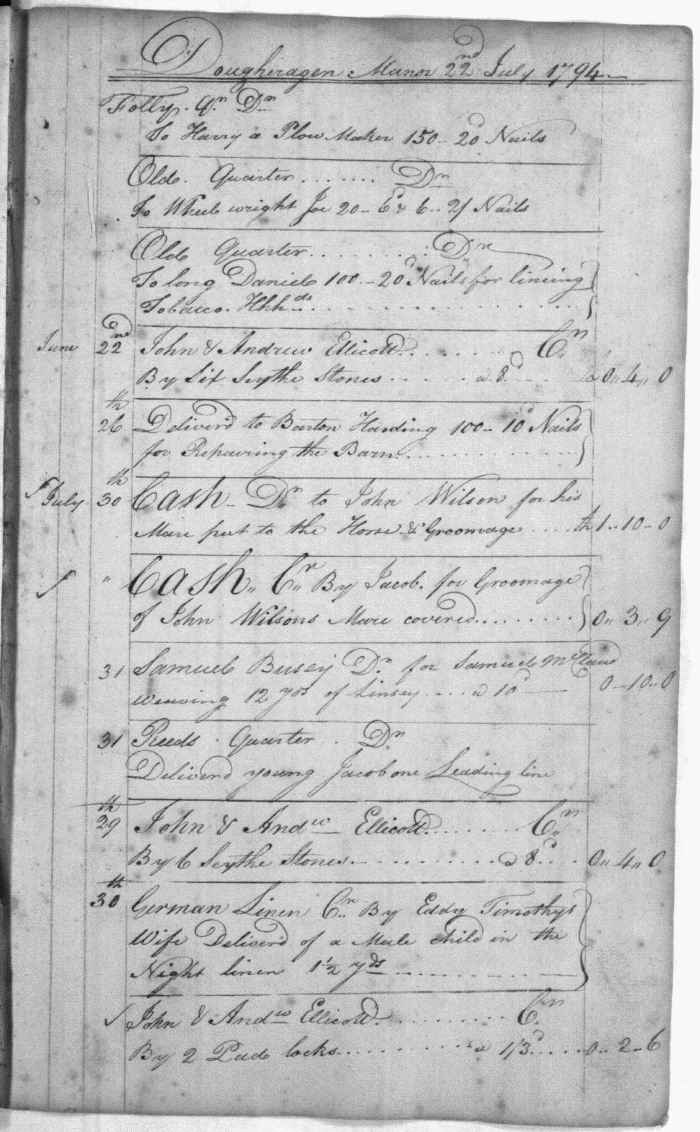 Dougheragen Manor 22nd July 1794
Folly Qr. Dr
To Harry a Plow Maker 150 - 20d Nails
Old Quarter ....... Dr
To Wheel wright Joe 20 - 6d & 6 - 2/ Nails
Old Quarter .......... Dr
To long Daniel 100 - 20d Nails for lineing
Tobacco Hhhds
June 22nd John & Andrew Ellicott ........ Cr
By Six Scythe Stones ..... a 8d 0,, 4,, 0
26th Deliverd to Barton Harding 100 - 10d Nails
for Repairing the Barn
July 30th Cash - Dr to John Wilson for his
Mare put to the Horse & Groomage .... 1 - 10 - 0
" Cash,, Cr,, By Jacob for Groomage
of John Wilsons Mare coverd ....... 0,, 3,, 9
31 Samuel Busey Dr for Samuel McCland
weaving 12 yds of Linsey .... a 10d 0 - 10 - 0
31 Reeds Quarter .. Dr
Deliverd young Jacob one Leading line
29th John & Andw Ellicott ....... Cr
By 6 Scythe Stones ........ a 8d .... 0,, 4,, 0
30th German Linen Cr By Eddy Timothys
Wife Deliverd of a Male child in the
Night linen 1 1/2 yds
John & Andw Ellicott ......... Cr
By 2 Pad locks .......... a 1/3d ..... 0 - 2 - 6